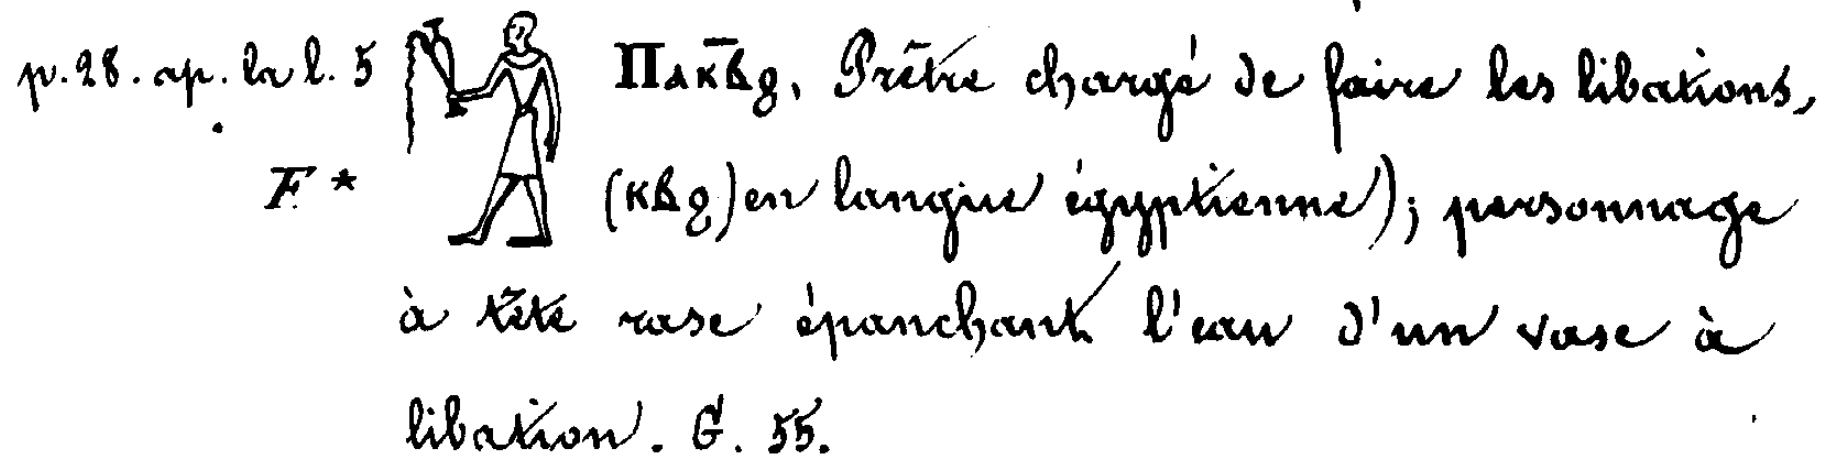 p. 28. ap. la l. 5 Ⲡⲁⲕ̅ⲃϩ, Prêtre chargé de faire les libations,
F * (ⲕⲃϩ) en langue égyptienne); personnage
à tête rase épanchant l'eau d'un vase à
libation. G. 55.